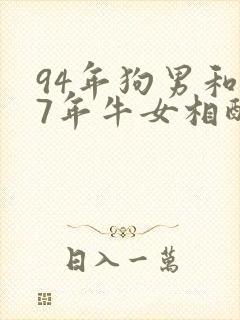 94年狗男和
7年牛女相
日入一萬